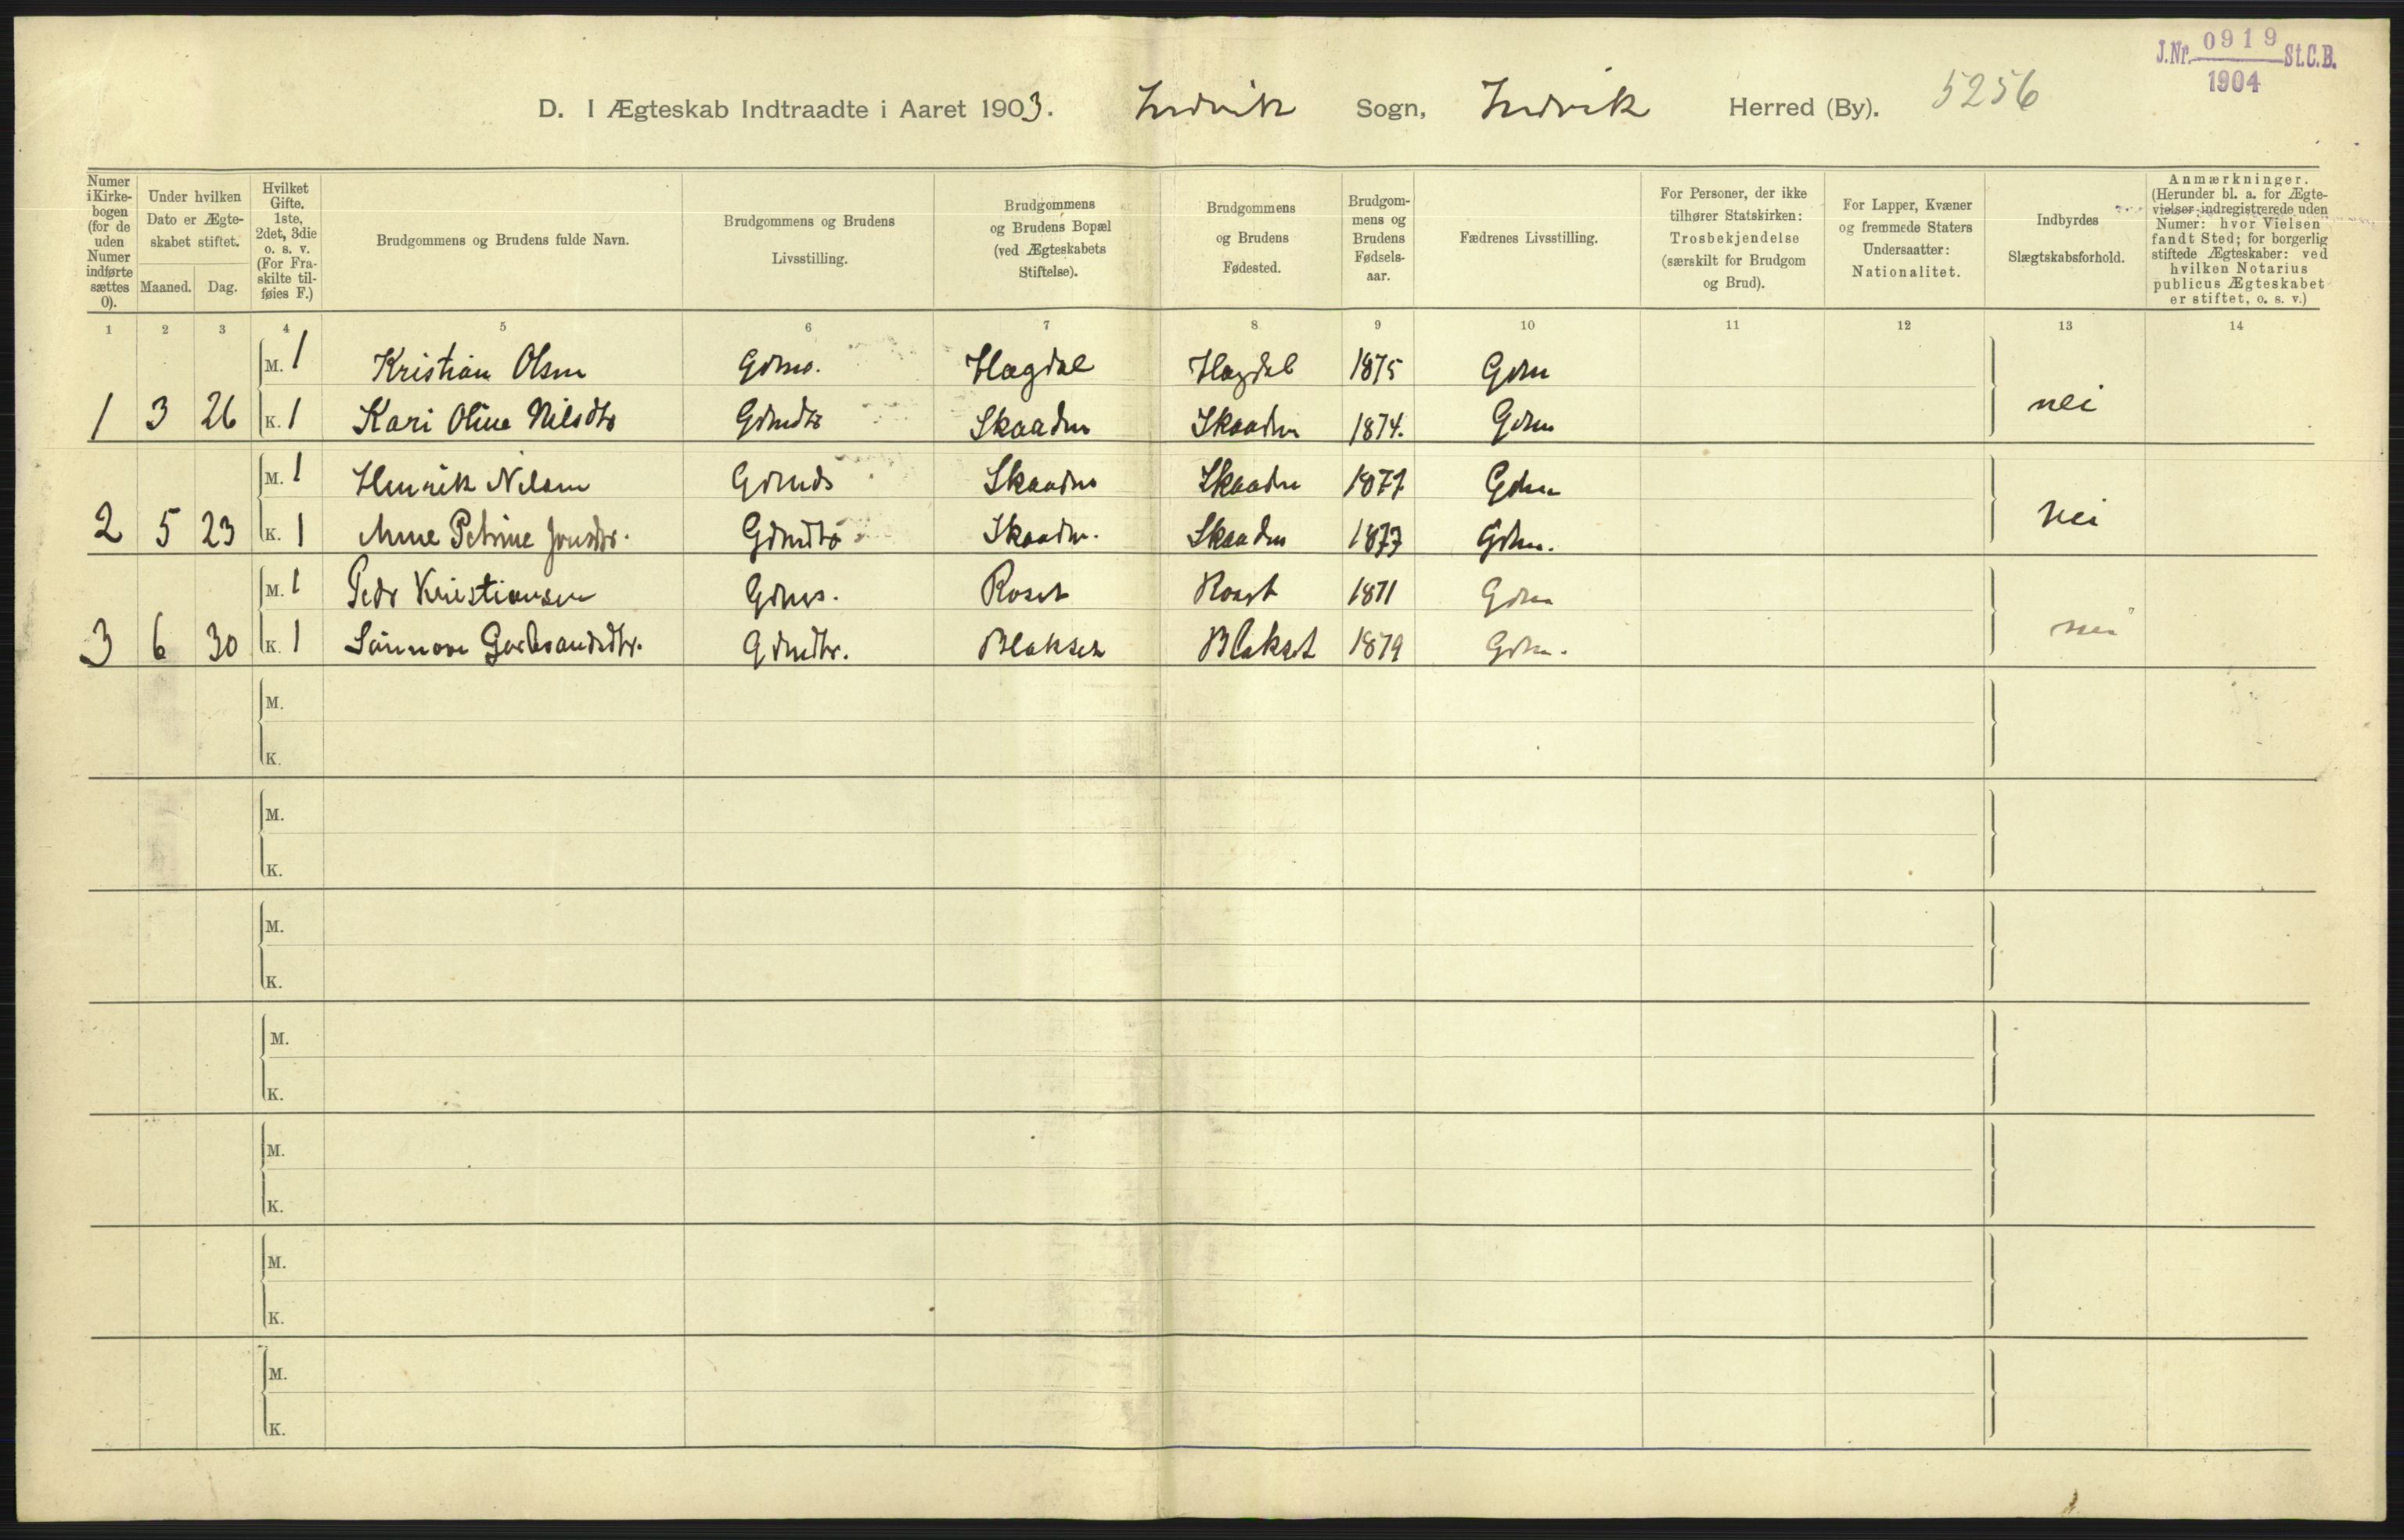 J.Nr. 0919 St.C.B.
1904
D. I Ægteskab Indtraadte i Aaret 1903. Indvik Sogn, Indvik Herred (By). 5256
Numer i Kirkebogen (for de uden Numer indførte sættes 0).
Under hvilken Dato er Ægteskabet stiftet.
Maaned. Dag.
Hvilket Gifte. 1ste, 2det, 3die o. s. v. (For Fraskilte tilføies F.)
Brudgommens og Brudens fulde Navn.
Brudgommens og Brudens Livsstilling.
Brudgommens og Brudens Bopæl (ved Ægteskabets Stiftelse).
Brudgommens og Brudens Fødested.
Brudgommens og Brudens Fødselsaar.
Fædrenes Livsstilling.
For Personer, der ikke tilhører Statskirken: Trosbekjendelse (særskilt for Brudgom og Brud).
For Lapper, Kvæner og fremmede Staters Undersaatter: Nationalitet.
Indbyrdes Slægtskabsforhold.
Anmærkninger. (Herunder bl. a. for Ægtevielser indregistrerede uden Numer: hvor Vielsen fandt Sted; for borgerlig stiftede Ægteskaber: ved hvilken Notarius publicus Ægteskabet er stiftet, o. s. v.)
1 2 3 4 5 6 7 8 9 10 11 12 13 14
M. 1 Kristian Olsen Gdms. Hagdal Hagdal 1875 Gdm
1 3 26 K. 1 Kari Oline Nilsdtr Gdmdtr Skaaden Skaaden 1874. Gdm nei
M. 1 Henrik Nilsen Gdmds Skaaden Skaaden 1877 Gdm
2 5 23 K. 1 Anne Petrine Jonsdtr. Gdmdtr Skaaden. Skaaden 1877 Gdm. nei
M. 1 Peder Kristiansen Gdms. Roset Roset 1871 Gdm
3 6 30 K. 1 Sannove Gerbrandsdtr. Gdmdtr. Blakset Blakset 1879 Gdm. nei
M.
K.
M.
K.
M.
K.
M.
K.
M.
K.
M.
K.
M.
K.